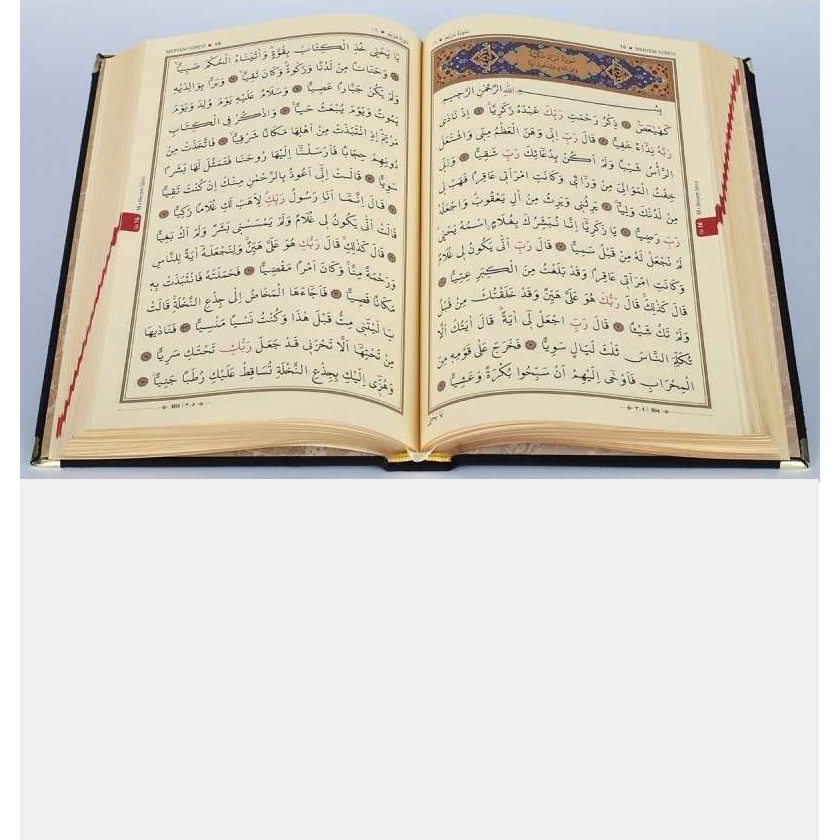 سورة مريم
١٩ MERYEM SURESİ
بِسْــــــمِ اللّٰهِ الرَّحْمٰنِ الرَّح۪يمِ
كٓهٰيٰعٓصٓ ذِكْرُ رَحْمَتِ رَبِّكَ عَبْدَهُ زَكَرِيَّا اِذْ نَادٰى
رَبَّهُ نِدَٓاءً خَفِيًّا قَالَ رَبِّ اِنّ۪ي وَهَنَ الْعَظْمُ مِنّ۪ي وَاشْتَعَلَ
الرَّأْسُ شَيْبًا وَلَمْ اَكُنْ بِدُعَٓائِكَ رَبِّ شَقِيًّا وَاِنّ۪ي
خِفْتُ الْمَوَالِيَ مِنْ وَرَٓاء۪ي وَكَانَتِ امْرَاَت۪ي عَاقِرًا فَهَبْ ل۪ي
مِنْ لَدُنْكَ وَلِيًّا يَرِثُن۪ي وَيَرِثُ مِنْ اٰلِ يَعْقُوبَ وَاجْعَلْهُ
رَبِّ رَضِيًّا يَا زَكَرِيَّٓا اِنَّا نُبَشِّرُكَ بِغُلَامٍۨ اسْمُهُ يَحْيٰى
لَمْ نَجْعَلْ لَهُ مِنْ قَبْلُ سَمِيًّا قَالَ رَبِّ اَنّٰى يَكُونُ ل۪ي غُلَامٌ
وَكَانَتِ امْرَاَت۪ي عَاقِرًا وَقَدْ بَلَغْتُ مِنَ الْكِبَرِ عِتِيًّا
قَالَ كَذٰلِكَ قَالَ رَبُّكَ هُوَ عَلَيَّ هَيِّنٌ وَقَدْ خَلَقْتُكَ مِنْ قَبْلُ
وَلَمْ تَكُ شَيْـًٔا قَالَ رَبِّ اجْعَلْ ل۪ٓي اٰيَةً قَالَ اٰيَتُكَ اَلَّا
تُكَلِّمَ النَّاسَ ثَلٰثَ لَيَالٍ سَوِيًّا فَخَرَجَ عَلٰى قَوْمِه۪ مِنَ
الْمِحْرَابِ فَاَوْحٰٓى اِلَيْهِمْ اَنْ سَبِّحُوا بُكْرَةً وَعَشِيًّا
٣٠٤ | 304
MERYEM SURESİ ١٩
يَا يَحْيٰى خُذِ الْكِتَابَ بِقُوَّةٍ وَاٰتَيْنَاهُ الْحُكْمَ صَبِيًّا
وَحَنَانًا مِنْ لَدُنَّا وَزَكٰوةً وَكَانَ تَقِيًّا وَبَرًّا بِوَالِدَيْهِ
وَلَمْ يَكُنْ جَبَّارًا عَصِيًّا وَسَلَامٌ عَلَيْهِ يَوْمَ وُلِدَ وَيَوْمَ
يَمُوتُ وَيَوْمَ يُبْعَثُ حَيًّا وَاذْكُرْ فِي الْكِتَابِ
مَرْيَمَ اِذِ انْتَبَذَتْ مِنْ اَهْلِهَا مَكَانًا شَرْقِيًّا فَاتَّخَذَتْ مِنْ
دُونِهِمْ حِجَابًا فَاَرْسَلْنَٓا اِلَيْهَا رُوحَنَا فَتَمَثَّلَ لَهَا بَشَرًا
سَوِيًّا قَالَتْ اِنّ۪ٓي اَعُوذُ بِالرَّحْمٰنِ مِنْكَ اِنْ كُنْتَ تَقِيًّا
قَالَ اِنَّمَٓا اَنَا رَسُولُ رَبِّكِ لِاَهَبَ لَكِ غُلَامًا زَكِيًّا
قَالَتْ اَنّٰى يَكُونُ ل۪ي غُلَامٌ وَلَمْ يَمْسَسْن۪ي بَشَرٌ وَلَمْ اَكُ بَغِيًّا
قَالَ كَذٰلِكِ قَالَ رَبُّكِ هُوَ عَلَيَّ هَيِّنٌ وَلِنَجْعَلَهُٓ اٰيَةً لِلنَّاسِ
وَرَحْمَةً مِنَّا وَكَانَ اَمْرًا مَقْضِيًّا فَحَمَلَتْهُ فَانْتَبَذَتْ بِه۪
مَكَانًا قَصِيًّا فَاَجَٓاءَهَا الْمَخَاضُ اِلٰى جِذْعِ النَّخْلَةِ قَالَتْ
يَا لَيْتَن۪ي مِتُّ قَبْلَ هٰذَا وَكُنْتُ نَسْيًا مَنْسِيًّا فَنَادٰيهَا
مِنْ تَحْتِهَٓا اَلَّا تَحْزَن۪ي قَدْ جَعَلَ رَبُّكِ تَحْتَكِ سَرِيًّا
وَهُزّ۪ٓي اِلَيْكِ بِجِذْعِ النَّخْلَةِ تُسَاقِطْ عَلَيْكِ رُطَبًا جَنِيًّا
٣٠٥